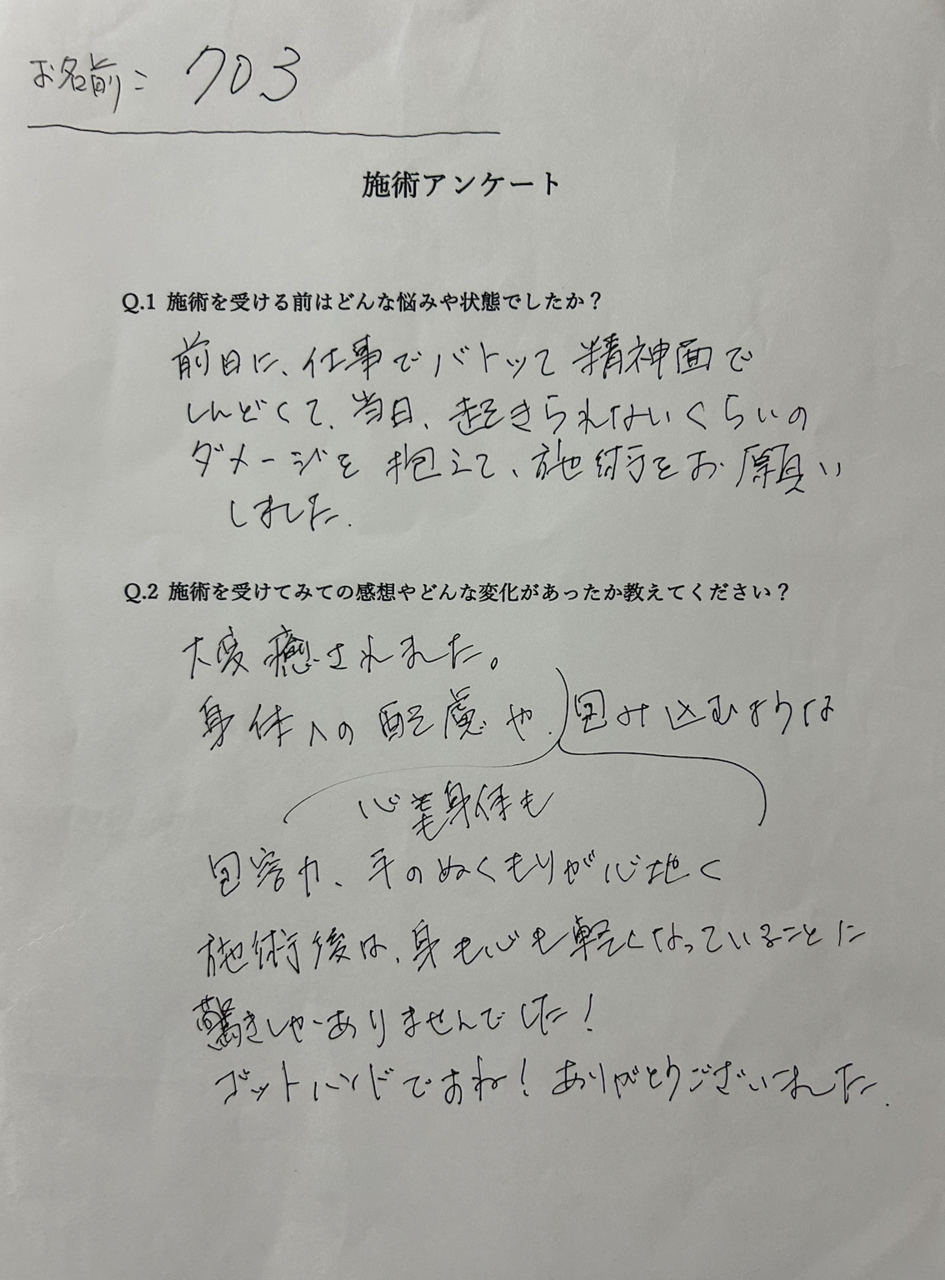 お名前：703
施術アンケート
Q.1 施術を受ける前はどんな悩みや状態でしたか？
前日に、仕事でバトッて精神面で
しんどくて、当日、起きられないくらいの
ダメージを抱えて、施術をお願い
しました.
Q.2 施術を受けてみての感想やどんな変化があったか教えてください？
大変癒されました。
身体への配慮や、包み込むような
心も身体も
包容力、手のぬくもりが心地く
施術後は、身も心も軽くなっていることに
驚きしかありませんでした！
ゴットハンドですね！ありがとうございました.